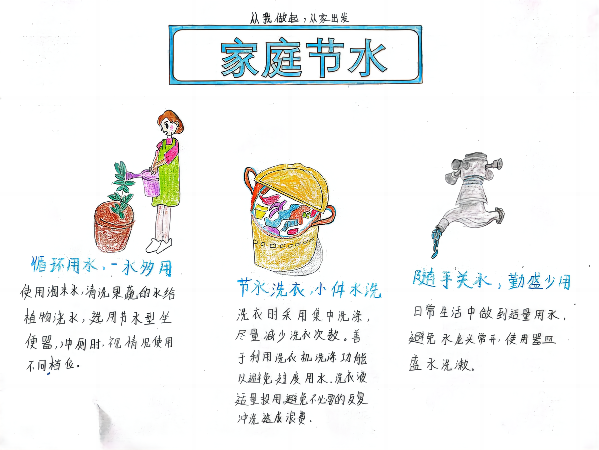 从我做起，从家出发
家庭节水
循环用水，一水多用
使用淘米水，清洗果蔬的水给
植物浇水，选用节水型坐
便器，冲厕时，视情况使用
不同档位。
节水洗衣，小件水洗
洗衣时采用集中洗涤，
尽量减少洗衣次数。善
于利用洗衣机洗涤功能
以避免过度用水。洗衣液
适量投用避免不必要的反复
冲洗造成浪费。
随手关水，勤盛少用
日常生活中做到适量用水，
避免水龙头常开，使用器皿
盛水洗漱。